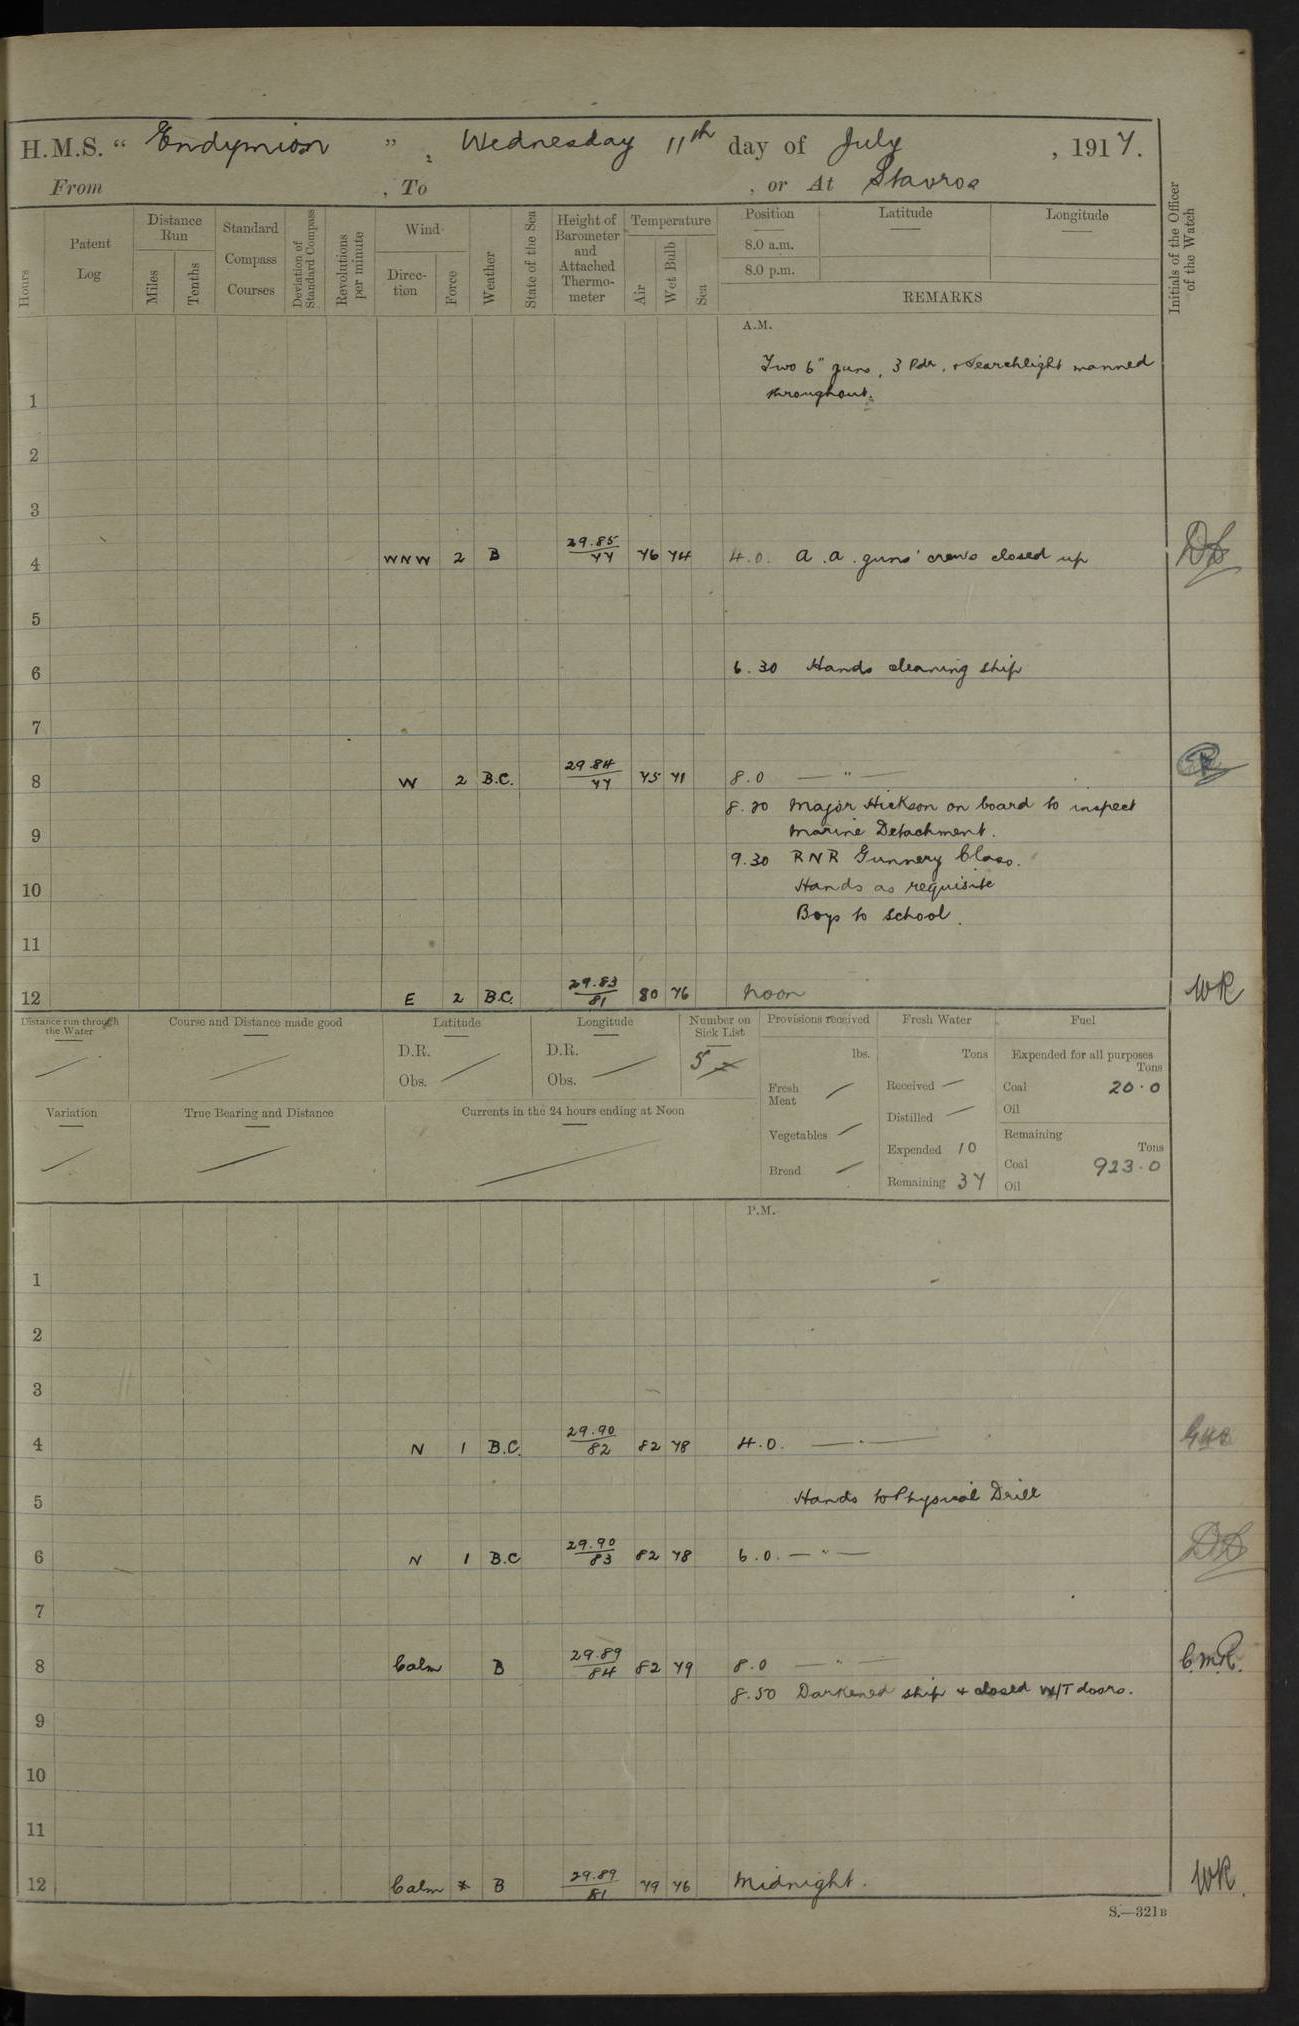 H.M.S. “ Endymion ”, Wednesday 11th day of July , 1917.
From , To , or At Stavros
Hours
Patent Log
Distance Run
Miles
Tenths
Standard Compass Courses
Deviation of Standard Compass
Revolutions per minute
Wind
Direction
Force
Weather
State of the Sea
Height of Barometer and Attached Thermometer
Temperature
Air
Wet Bulb
Sea
Position
8.0 a.m.
8.0 p.m.
Latitude
Longitude
REMARKS
Initials of the Officer of the Watch
A.M.
Two 6" guns, 3 Pdr, + Searchlight manned
1 throughout.
2
3
4 WNW 2 B 29.85 77 76 74 4.0. A.A. guns' crews closed up
5
6 6.30 Hands cleaning ship
7
8 W 2 B.C. 29.84 77 75 71 8.0 — " —
8.20 Major Hickson on board to inspect
9 Marine Detachment.
9.30 RNR Gunnery Class.
10 Hands as requisite
Boys to school.
11
12 E 2 B.C. 29.83 81 80 76 Noon WR
Distance run through the Water
Course and Distance made good
Latitude
D.R.
Obs.
Longitude
D.R.
Obs.
Number on Sick List
5
Provisions received
lbs.
Fresh Meat
Vegetables
Bread
Fresh Water
Tons
Received
Distilled
Expended 10
Remaining 37
Fuel
Expended for all purposes
Tons
Coal 20.0
Oil
Remaining
Tons
Coal 923.0
Oil
Variation
True Bearing and Distance
Currents in the 24 hours ending at Noon
P.M.
1
2
3
4 N 1 B.C. 29.90 82 82 78 4.0. — . —
5 Hands to Physical Drill
6 N 1 B.C 29.90 83 82 78 6.0. — " —
7
8 Calm B 29.89 84 82 79 8.0 — " — C.M.R.
8.50 Darkened ship + closed W/T doors.
9
10
11
12 Calm * B 29.89 81 79 76 Midnight. WR.
S.—321B